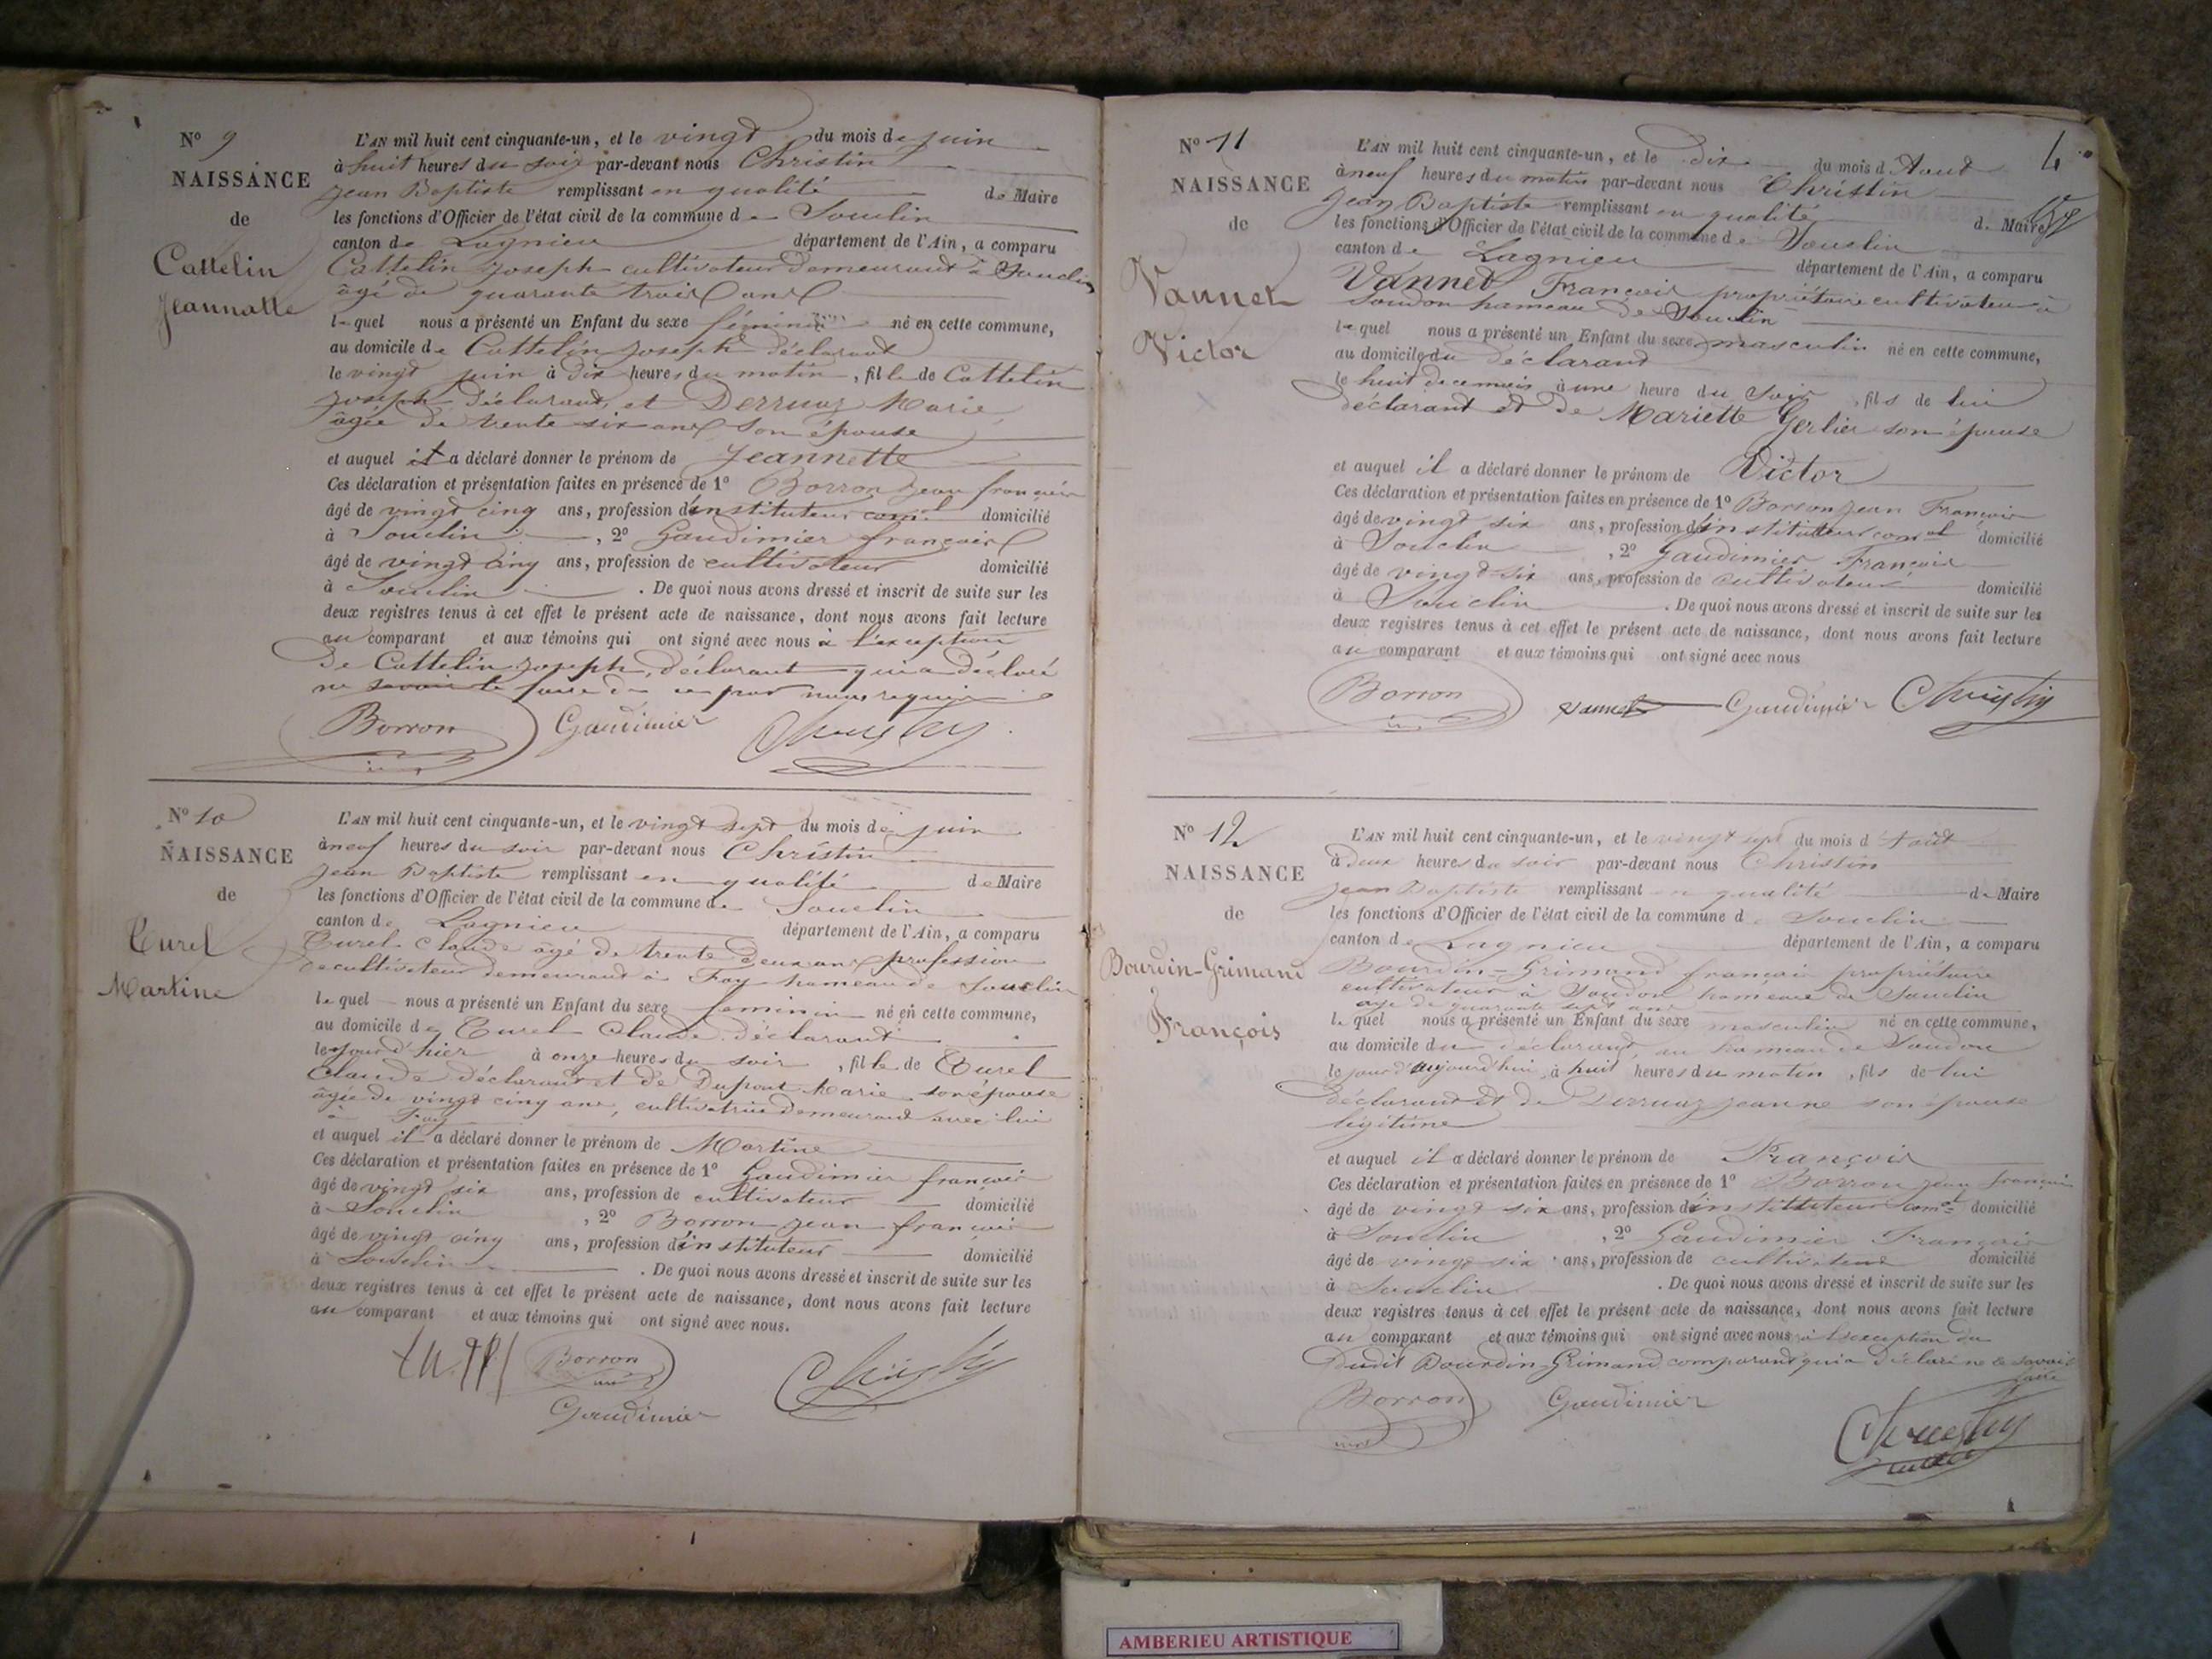 N° 9
NAISSANCE
de
Cattelin
Jeannette
L'AN mil huit cent cinquante-un, et le vingt du mois de juin
à huit heures du soir par-devant nous Christin
Jean Baptiste remplissant en qualité de Maire
les fonctions d'Officier de l'état civil de la commune de Souclin
canton de Lagnieu département de l'Ain, a comparu
Cattelin Joseph cultivateur demeurant à Souclin
âgé de quarante trois ans
lequel nous a présenté un Enfant du sexe féminin né en cette commune,
au domicile de Cattelin Joseph déclarant
le vingt juin à dix heures du matin, fille de Cattelin
Joseph déclarant, et Derruaz Marie
âgée de trente six ans son épouse
et auquel il a déclaré donner le prénom de Jeannette
Ces déclaration et présentation faites en présence de 1° Borron Jean françois
âgé de vingt cinq ans, profession d'instituteur com.l domicilié
à Souclin, 2° Gaudimier françois
âgé de vingt cinq ans, profession de cultivateur domicilié
à Souclin. De quoi nous avons dressé et inscrit de suite sur les
deux registres tenus à cet effet le présent acte de naissance, dont nous avons fait lecture
au comparant et aux témoins qui ont signé avec nous à l'exception
de Cattelin Joseph, déclarant qui a déclaré
ne savoir le faire de ce par nous requis
Borron Gaudimier Christin
N° 10
NAISSANCE
de
Curel
Martine
L'AN mil huit cent cinquante-un, et le vingt sept du mois de juin
à neuf heures du soir par-devant nous Christin
Jean Baptiste remplissant en qualité de Maire
les fonctions d'Officier de l'état civil de la commune de Souclin
canton de Lagnieu département de l'Ain, a comparu
Curel Claude âgé de trente deux ans profession
de cultivateur demeurant à Fay hameau de Souclin
lequel nous a présenté un Enfant du sexe feminin né en cette commune,
au domicile de Curel Claude déclarant
le jour d'hier à onze heures du soir, fille de Curel
Claude déclarant et de Dupont Marie son épouse
âgée de vingt cinq ans, cultivatrice demeurant avec lui
à Fay
et auquel il a déclaré donner le prénom de Martine
Ces déclaration et présentation faites en présence de 1° Gaudimier françois
âgé de vingt six ans, profession de cultivateur domicilié
à Souclin, 2° Borron Jean françois
âgé de vingt cinq ans, profession d'instituteur domicilié
à Souclin. De quoi nous avons dressé et inscrit de suite sur les
deux registres tenus à cet effet le présent acte de naissance, dont nous avons fait lecture
au comparant et aux témoins qui ont signé avec nous.
Borron Christin
Gaudimier
4
N° 11
NAISSANCE
de
Vannet
Victor
L'AN mil huit cent cinquante-un, et le dix du mois d'Aout
à neuf heures du matin par-devant nous Christin
Jean Baptiste remplissant en qualité de Maire
les fonctions d'Officier de l'état civil de la commune de Souclin
canton de Lagnieu département de l'Ain, a comparu
Vannet François propriétaire cultivateur à
Soudon hameau de Souclin
lequel nous a présenté un Enfant du sexe masculin né en cette commune,
au domicile du déclarant
le huit de ce mois à une heure du soir, fils de lui
déclarant et de Mariette Gerlier son épouse
et auquel il a déclaré donner le prénom de Victor
Ces déclaration et présentation faites en présence de 1° Borron Jean François
âgé de vingt six ans, profession d'instituteur com.al domicilié
à Souclin, 2° Gaudimier François
âgé de vingt-six ans, profession de cultivateur domicilié
à Souclin. De quoi nous avons dressé et inscrit de suite sur les
deux registres tenus à cet effet le présent acte de naissance, dont nous avons fait lecture
au comparant et aux témoins qui ont signé avec nous
Borron Vannet Gaudimier Christin
N° 12
NAISSANCE
de
Bourdin-Grimand
François
L'AN mil huit cent cinquante-un, et le vingt sept du mois d'Août
à deux heures du soir par-devant nous Christin
Jean Baptiste remplissant en qualité de Maire
les fonctions d'Officier de l'état civil de la commune de Souclin
canton de Lagnieu département de l'Ain, a comparu
Bourdin=Grimand françois propriétaire
cultivateur à Soudon hameau de Souclin
âgé de quarante sept ans
lequel nous a présenté un Enfant du sexe masculin né en cette commune,
au domicile du déclarant, au hameau de Soudon
le jour d'aujourd'hui à huit heures du matin, fils de lui
déclarant et de Derruaz Jeanne son épouse
légitime
et auquel il a déclaré donner le prénom de François
Ces déclaration et présentation faites en présence de 1° Borron Jean françois
âgé de vingt six ans, profession d'instituteur com.al domicilié
à Souclin, 2° Gaudimier François
âgé de vingt six ans, profession de cultivateur domicilié
à Souclin. De quoi nous avons dressé et inscrit de suite sur les
deux registres tenus à cet effet le présent acte de naissance, dont nous avons fait lecture
au comparant et aux témoins qui ont signé avec nous à l'exception du
dudit Bourdin-Grimand comparant qui a déclaré ne le savoir
faire
Borron Gaudimier Christin
AMBERIEU ARTISTIQUE